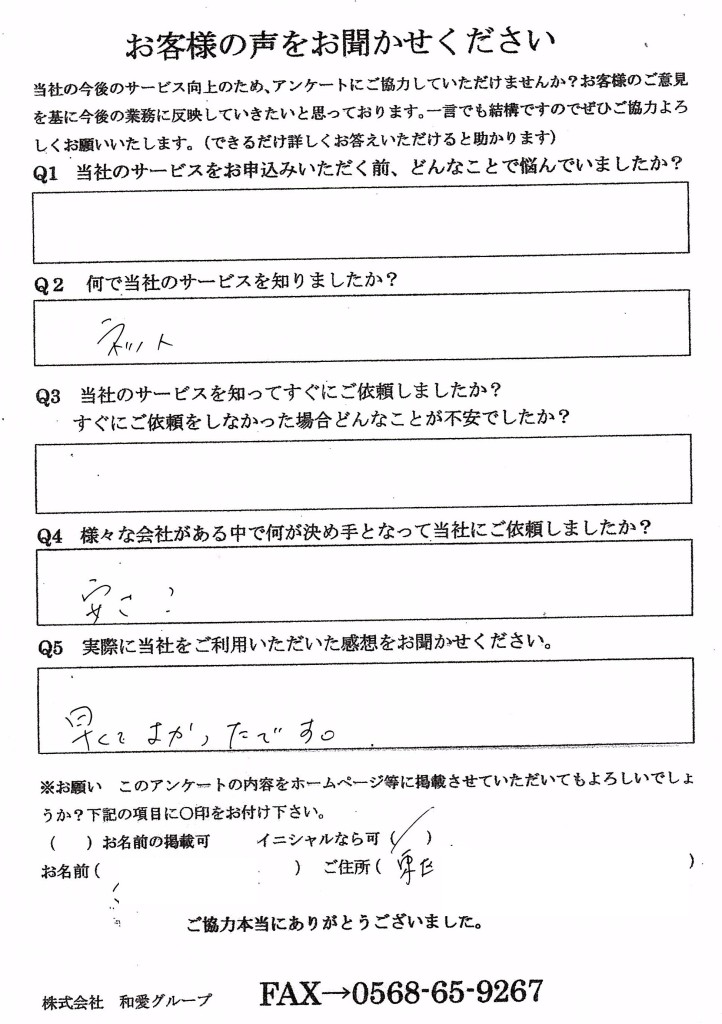 お客様の声をお聞かせください
当社の今後のサービス向上のため、アンケートにご協力していただけませんか？お客様のご意見
を基に今後の業務に反映していきたいと思っております。一言でも結構ですのでぜひご協力よろ
しくお願いいたします。（できるだけ詳しくお答えいただけると助かります）
Q1 当社のサービスをお申込みいただく前、どんなことで悩んでいましたか？
Q2 何で当社のサービスを知りましたか？
ネット
Q3 当社のサービスを知ってすぐにご依頼しましたか？
すぐにご依頼をしなかった場合どんなことが不安でしたか？
Q4 様々な会社がある中で何が決め手となって当社にご依頼しましたか？
安さ？
Q5 実際に当社をご利用いただいた感想をお聞かせください。
早くてよかったです。
※お願い このアンケートの内容をホームページ等に掲載させていただいてもよろしいでしょ
うか？下記の項目に〇印をお付け下さい。
（ ）お名前の掲載可 イニシャルなら可（ ）
お名前（ ） ご住所（ ）
ご協力本当にありがとうございました。
株式会社 和愛グループ FAX→0568-65-9267